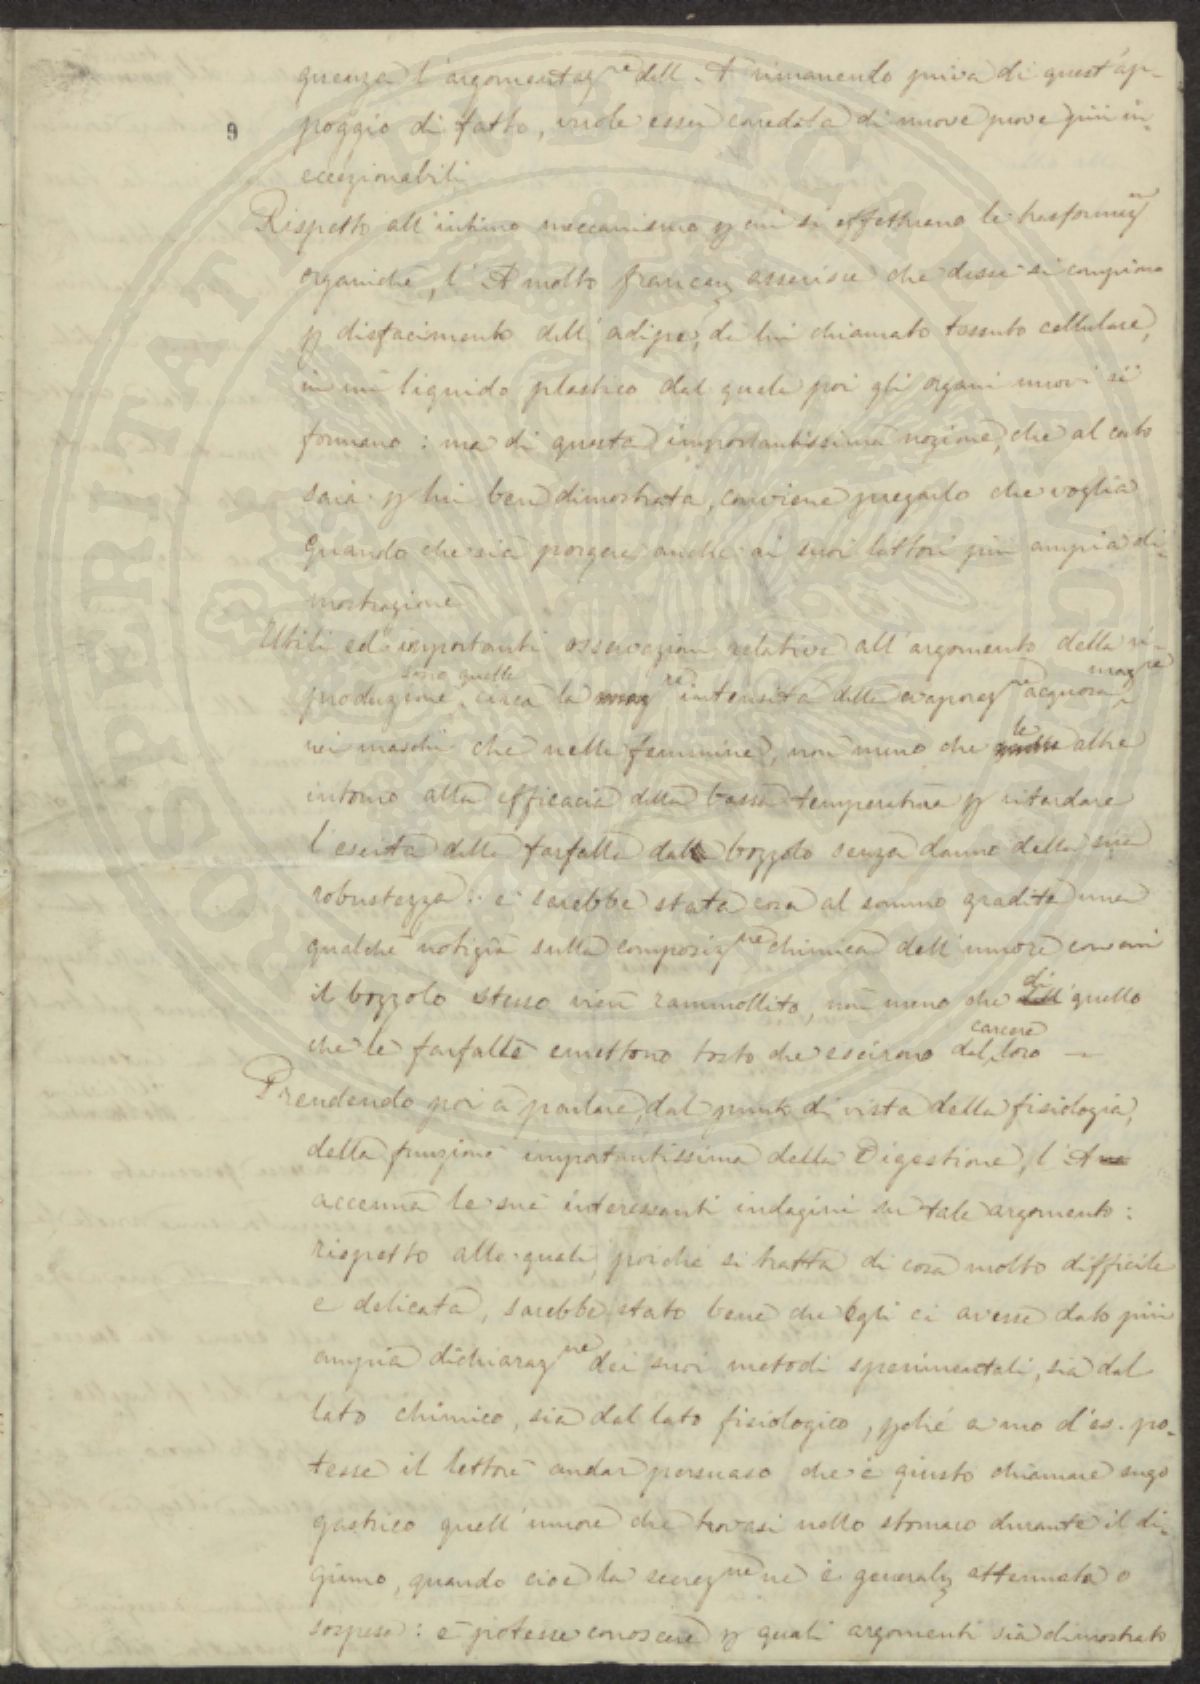 9
quenza l'argomentaz.ne dell'A rimanendo priva di quest'ap-
poggio di fatto, vuole esser corredata di nuove prove più in-
eccezionabili
Rispetto all'intimo meccanismo p cui si effettuano le trasformaz.ni
organiche, l'A molto francam asserisce che desse si compiono
p disfacimento dell'adipe, da lui chiamato tessuto cellulare,
in un liquido plastico dal quale poi gli organi nuovi si
formano: ma di questa importantissima nozione, che al certo
sarà p lui ben dimostrata, conviene pregarlo che voglia
quando che sia porgere anche ai suoi lettori più ampia di-
mostrazione
Utili ed importanti osservazioni relative all'argomento della ri-
produzione, sono quelle circa la intensità della evaporaz.ne acquosa magre
nei maschi che nelle femmine, non meno che le altre
intorno alla efficacia della bassa temperatura p ritardare
l'escita della farfalla dal bozzolo senza danno della sua
robustezza: e sarebbe stata cosa al sommo gradita una
qualche notizia sulla composiz.ne chimica dell'umore con cui
il bozzolo stesso vien rammollito, non meno che di quello
che le farfalle emettono tosto che escirono dal carcere loro —
Prendendo poi a parlare, dal punto di vista della fisiologia,
della funzione importantissima della Digestione, l'A
accenna le sue interessanti indagini su tale argomento:
rispetto alle quali, poichè si tratta di cosa molto difficile
e delicata, sarebbe stato bene che Egli ci avesse dato più
ampia dichiaraz.ne dei suoi metodi sperimentali, sia dal
lato chimico, sia dal lato fisiologico, pchè a mo d'es. po-
tesse il lettore andar persuaso che è giusto chiamare sugo
gastrico quell'umore che trovasi nello stomaco durante il di-
giuno, quando cioè la secrez.ne ne è generalm attenuata o
sospesa: e potesse conoscere p quali argomenti sia dimostrato